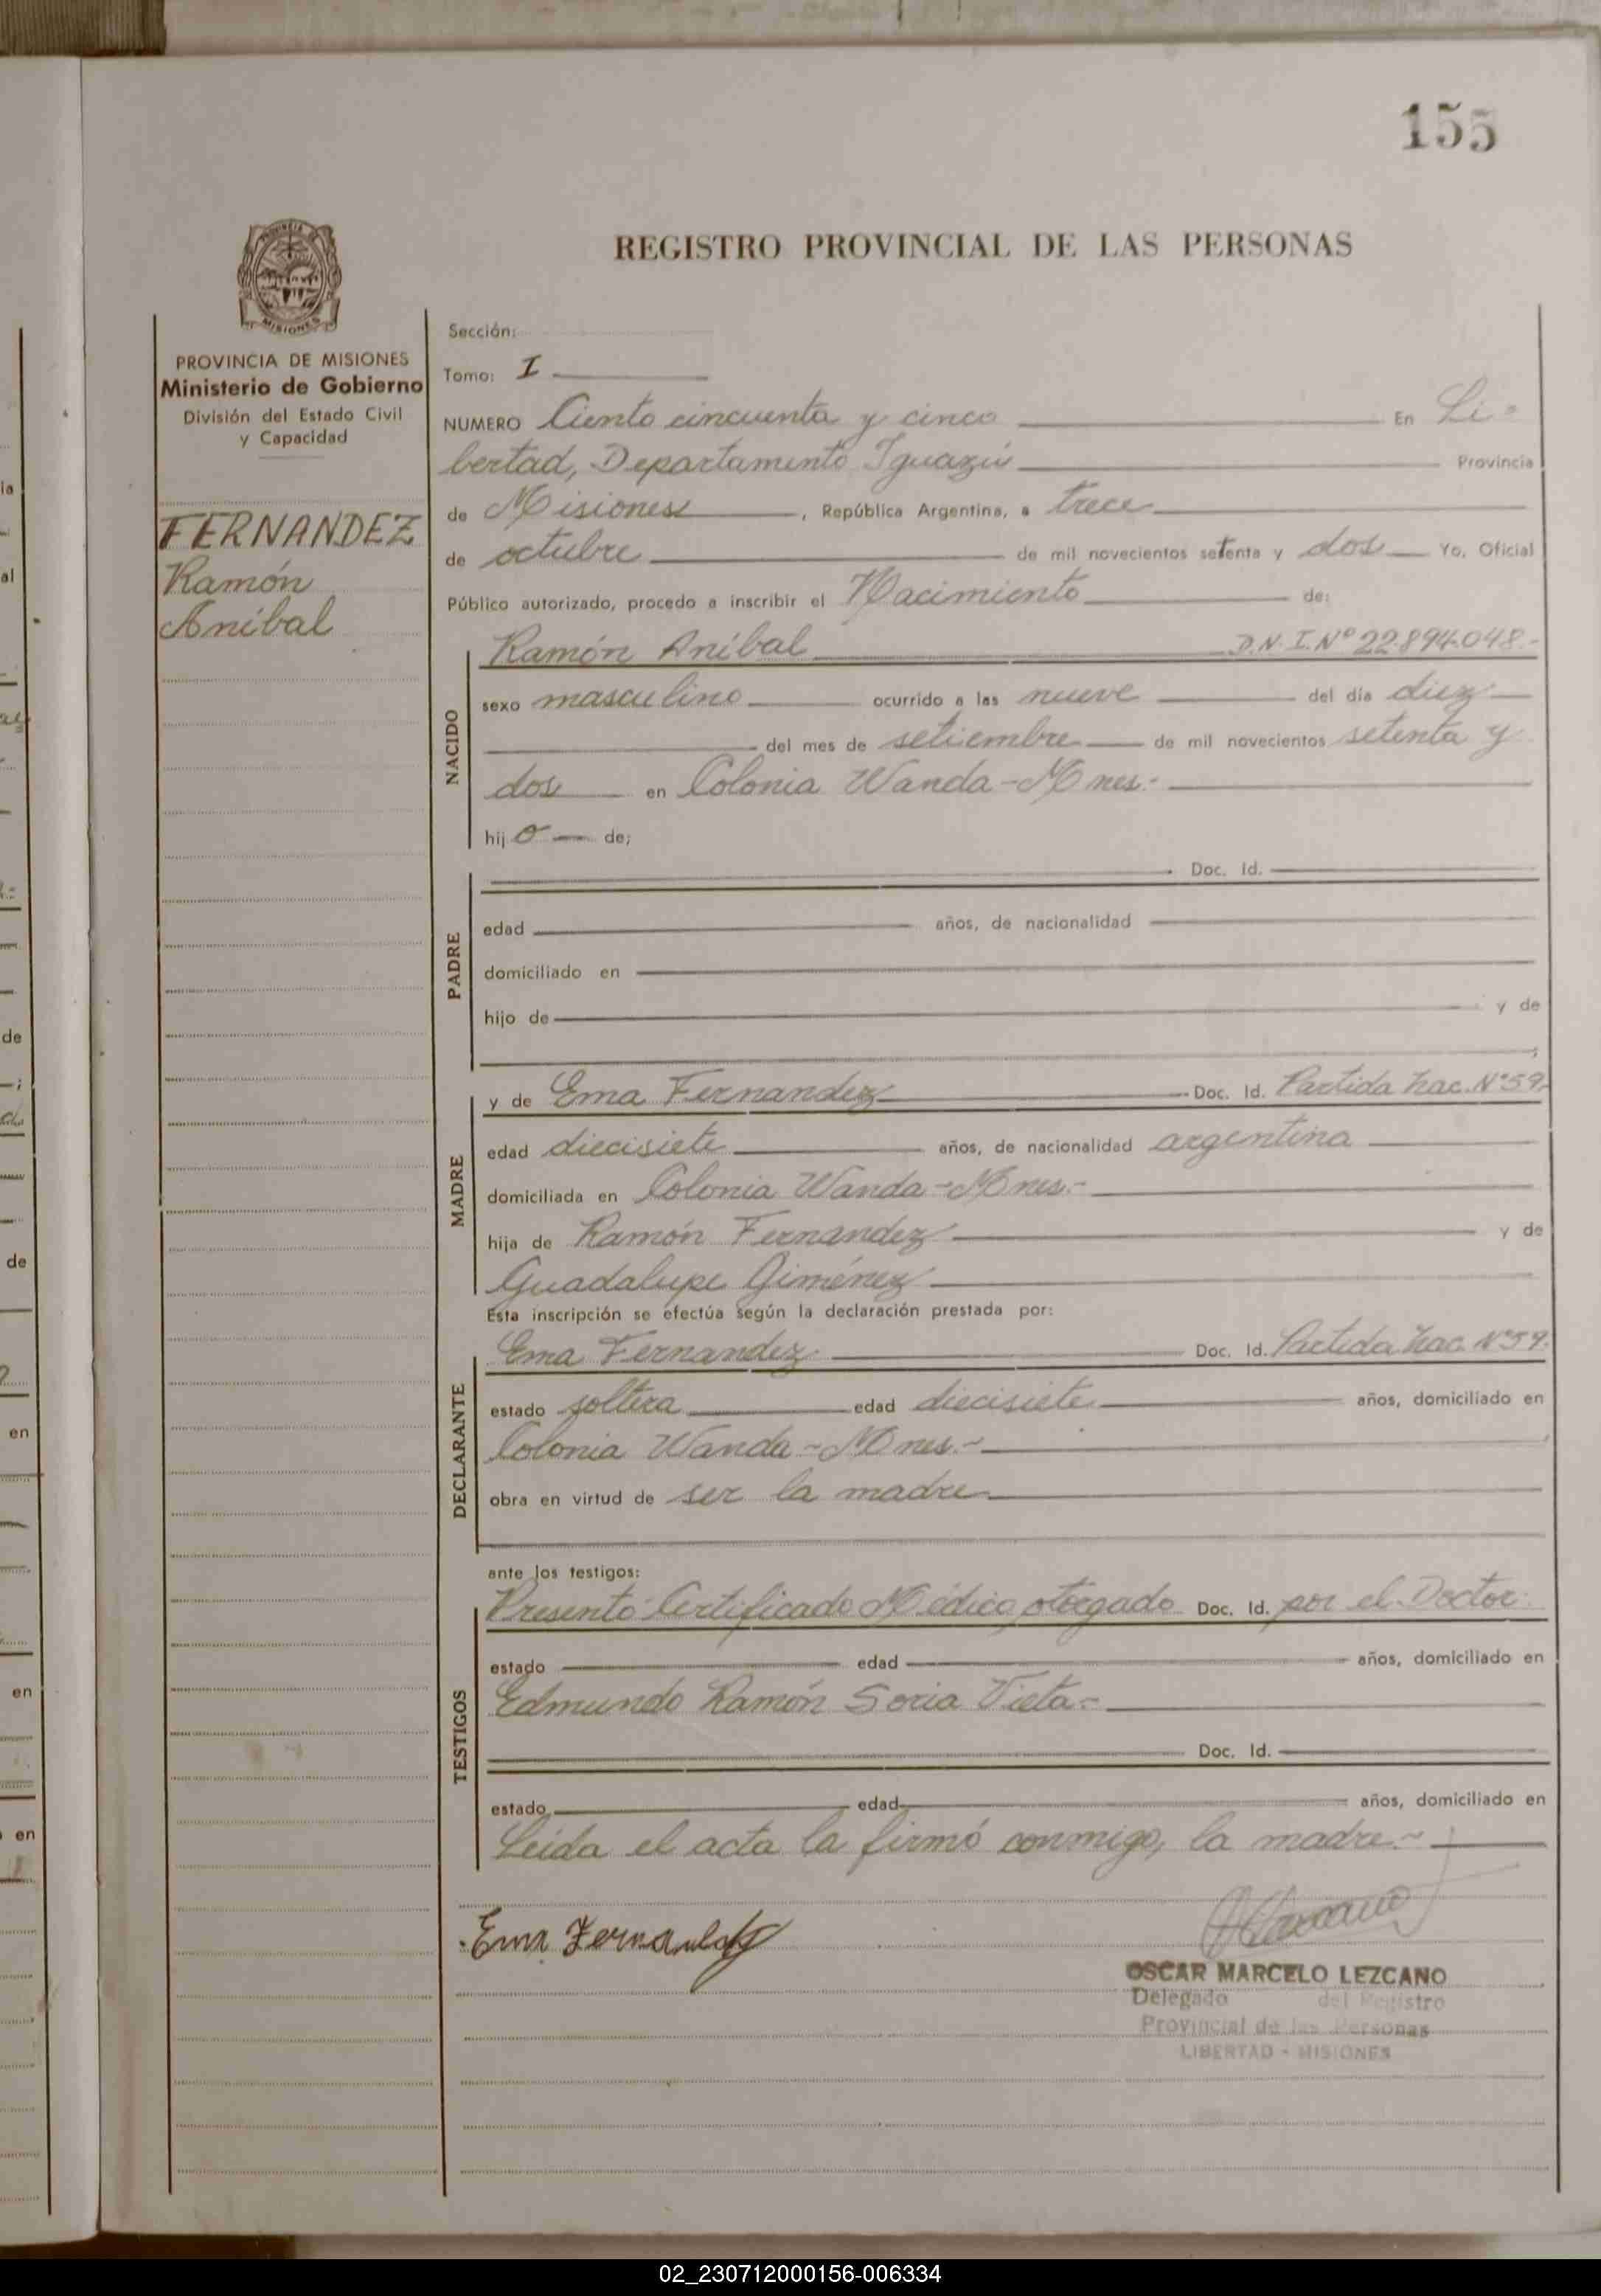 155
REGISTRO PROVINCIAL DE LAS PERSONAS
MISIONES
PROVINCIA DE MISIONES
Ministerio de Gobierno
División del Estado Civil
y Capacidad
FERNANDEZ
Ramón
Aníbal
Sección:
Tomo: I
NUMERO Ciento cincuenta y cinco En Li-
bertad, Departamento Iguazú Provincia
de Misiones, República Argentina, a trece
de octubre de mil novecientos setenta y dos Yo, Oficial
Público autorizado, procedo a inscribir el Nacimiento de:
NACIDO
Ramón Aníbal D.N.I. Nº 22.894.048.-
sexo masculino ocurrido a las nueve del día diez
del mes de setiembre de mil novecientos setenta y
dos en Colonia Wanda-Mnes.-
hijo de;
PADRE
Doc. Id.
edad años, de nacionalidad
domiciliado en
hijo de y de
;
MADRE
y de Ema Fernandez Doc. Id. Partida Nac. Nº 59.
edad diecisiete años, de nacionalidad argentina
domiciliada en Colonia Wanda-Mnes.-
hija de Ramón Fernandez y de
Guadalupe Giménez
Esta inscripción se efectúa según la declaración prestada por:
DECLARANTE
Ema Fernandez Doc. Id. Partida Nac. Nº 59.
estado soltera edad diecisiete años, domiciliado en
Colonia Wanda-Mnes.-
obra en virtud de ser la madre
ante los testigos:
TESTIGOS
Presentó Certificado Médico otorgado Doc. Id. por el Doctor
estado edad años, domiciliado en
Edmundo Ramón Soria Vieta.-
Doc. Id.
estado edad años, domiciliado en
Leída el acta la firmó conmigo, la madre.-
Ema Fernandez
OSCAR MARCELO LEZCANO
Delegado del Registro
Provincial de las Personas
LIBERTAD - MISIONES
02_230712000156-006334